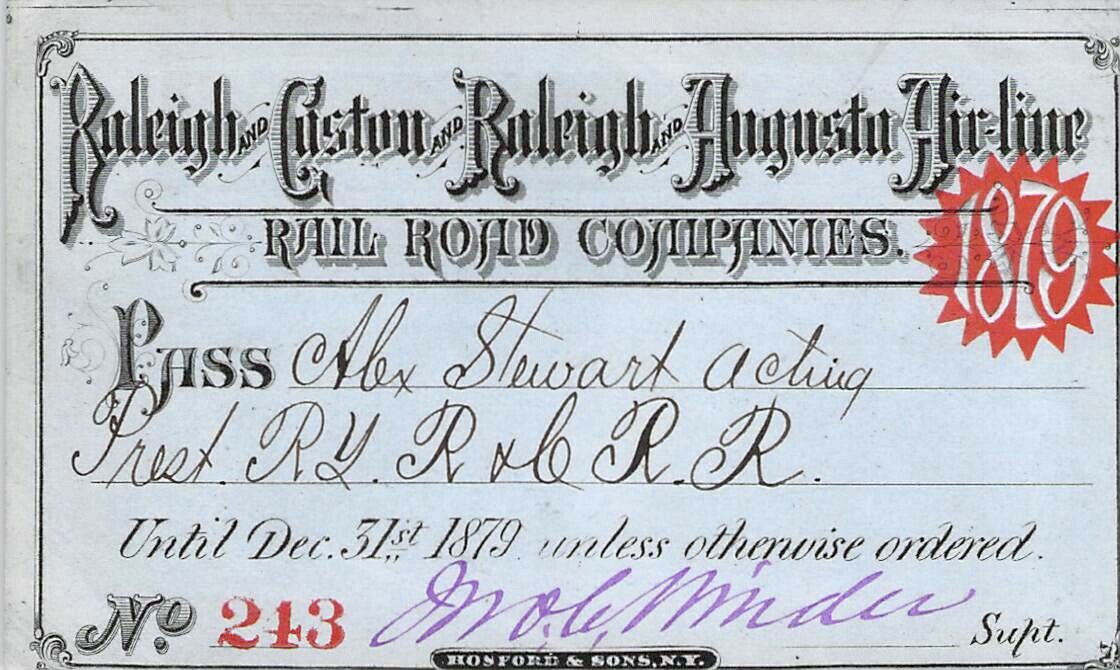 Raleigh AND Gaston AND Raleigh AND Augusta Air-line
RAIL ROAD COMPANIES.
1879
PASS Alex Stewart acting
Prest. R Y. R & C R. R.
Until Dec. 31st 1879 unless otherwise ordered.
No 243 Jno. C. Winder Supt.
HOSFORD & SONS, N.Y.